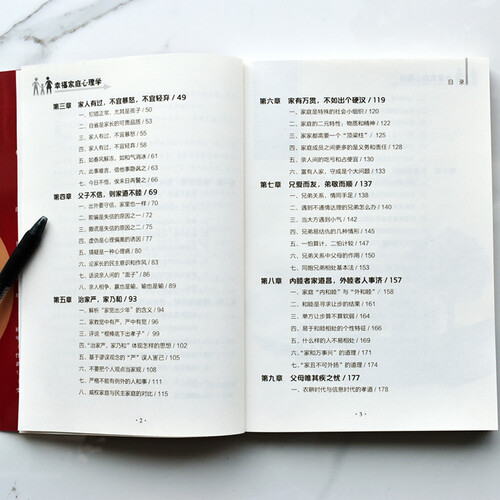 幸福家庭心理学
第三章 家人有过，不宜暴怒，不宜轻弃 / 49
一、犯错正常，尤其是孩子 / 50
二、自省是家长的可贵品质 / 53
三、家人有过，不宜暴怒 / 55
四、家人有过，不宜轻弃 / 58
五、如春风解冻，如和气消冰 / 61
六、此事难言，借他事隐讽之 / 64
七、今日不悟，俟来日再警之 / 66
第四章 父子不信，则家道不睦 / 69
一、出外要守信，家里也一样 / 70
二、欺骗是失信的原因之一 / 72
三、撒谎是失信的原因之二 / 75
四、虚伪是心理偏离的诱因 / 77
五、猜疑是一种心理病 / 80
六、论家长的民主意识和作风 / 83
七、话说亲人间的“面子” / 86
八、亲人相争，赢也是输，输也是输 / 89
第五章 治家严，家乃和 / 93
一、解析“家宽出少年”的含义 / 94
二、家教宽中有严，严中有宽 / 96
三、评说“棍棒底下出孝子” / 99
四、“治家严，家乃和”体现怎样的思想 / 102
五、基于谬误观念的“严”误人害己 / 105
六、不要把个人观点当家规 / 108
七、严格不能有例外的人和事 / 111
八、威权家庭与民主家庭的对比 / 115
· 2 ·
目 录
第六章 家有万贯，不如出个硬汉 / 119
一、家庭是特殊的社会小组织 / 120
二、家庭的二元特性：物质和精神 / 122
三、家家都需要一个“顶梁柱” / 125
四、家庭成员之间更多的是义务和责任 / 128
五、亲人间的吃亏和占便宜 / 130
六、富有人家，守成是个大问题 / 133
第七章 兄爱而友，弟敬而顺 / 137
一、兄弟关系，情同手足 / 138
二、遇到不通情达理的兄弟怎么办 / 140
三、当大方遇到小气 / 142
四、兄弟易结仇的几种情形 / 145
五、一怕算计，二怕计较 / 147
六、兄弟关系中父母的作用 / 150
七、同胞兄弟相处基本法 / 153
第八章 内睦者家道昌，外睦者人事济 / 157
一、家庭“内和睦”与“外和睦” / 158
二、和睦是寻求让步的结果 / 161
三、单方让步算不算软弱 / 164
四、易于和睦相处的个性特征 / 166
五、什么样的人不易相处 / 169
六、“家和万事兴”的道理 / 171
七、“家丑不可外扬”的道理 / 174
第九章 父母唯其疾之忧 / 177
一、农耕时代与信息时代的孝道 / 178
· 3 ·